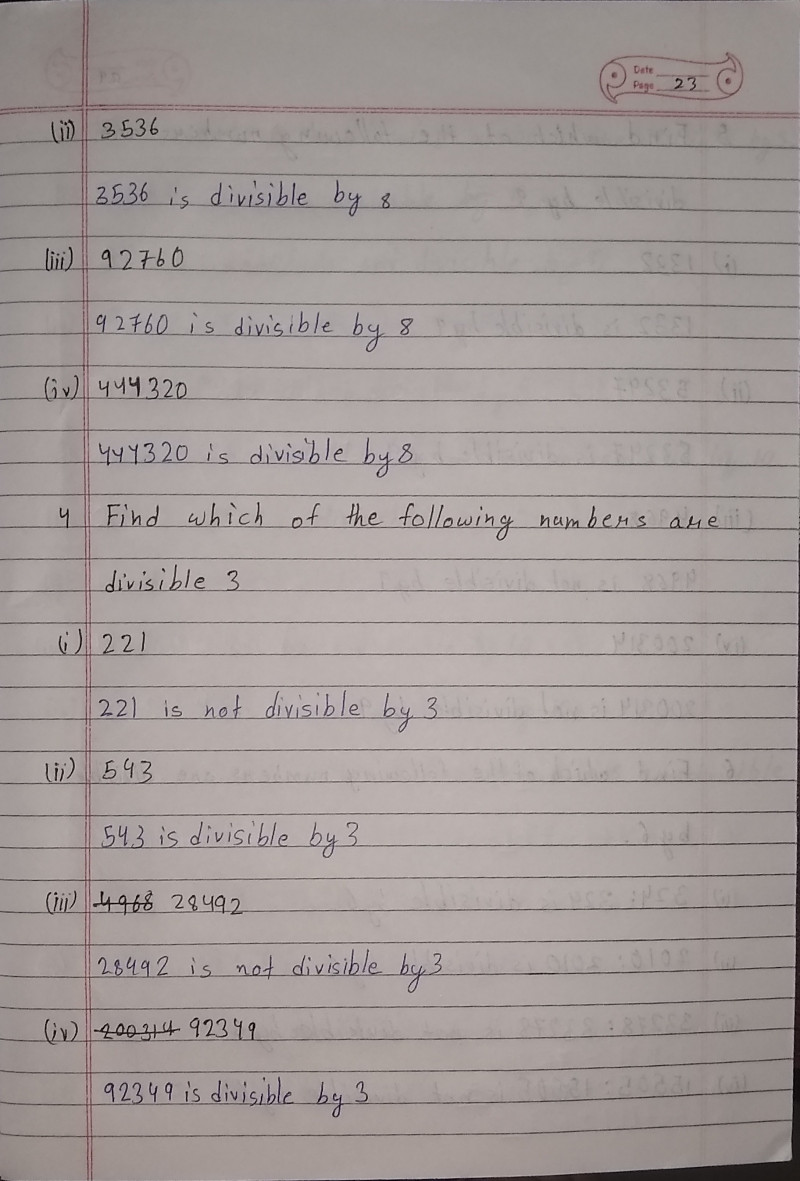 Date
Page 23
(ii) 3536
3536 is divisible by 8
(iii) 92760
92760 is divisible by 8
(iv) 444320
444320 is divisible by 8
4 Find which of the following numbers are
divisible 3
(i) 221
221 is not divisible by 3
(ii) 543
543 is divisible by 3
(iii) 4968 28492
28492 is not divisible by 3
(iv) 200314 92349
92349 is divisible by 3